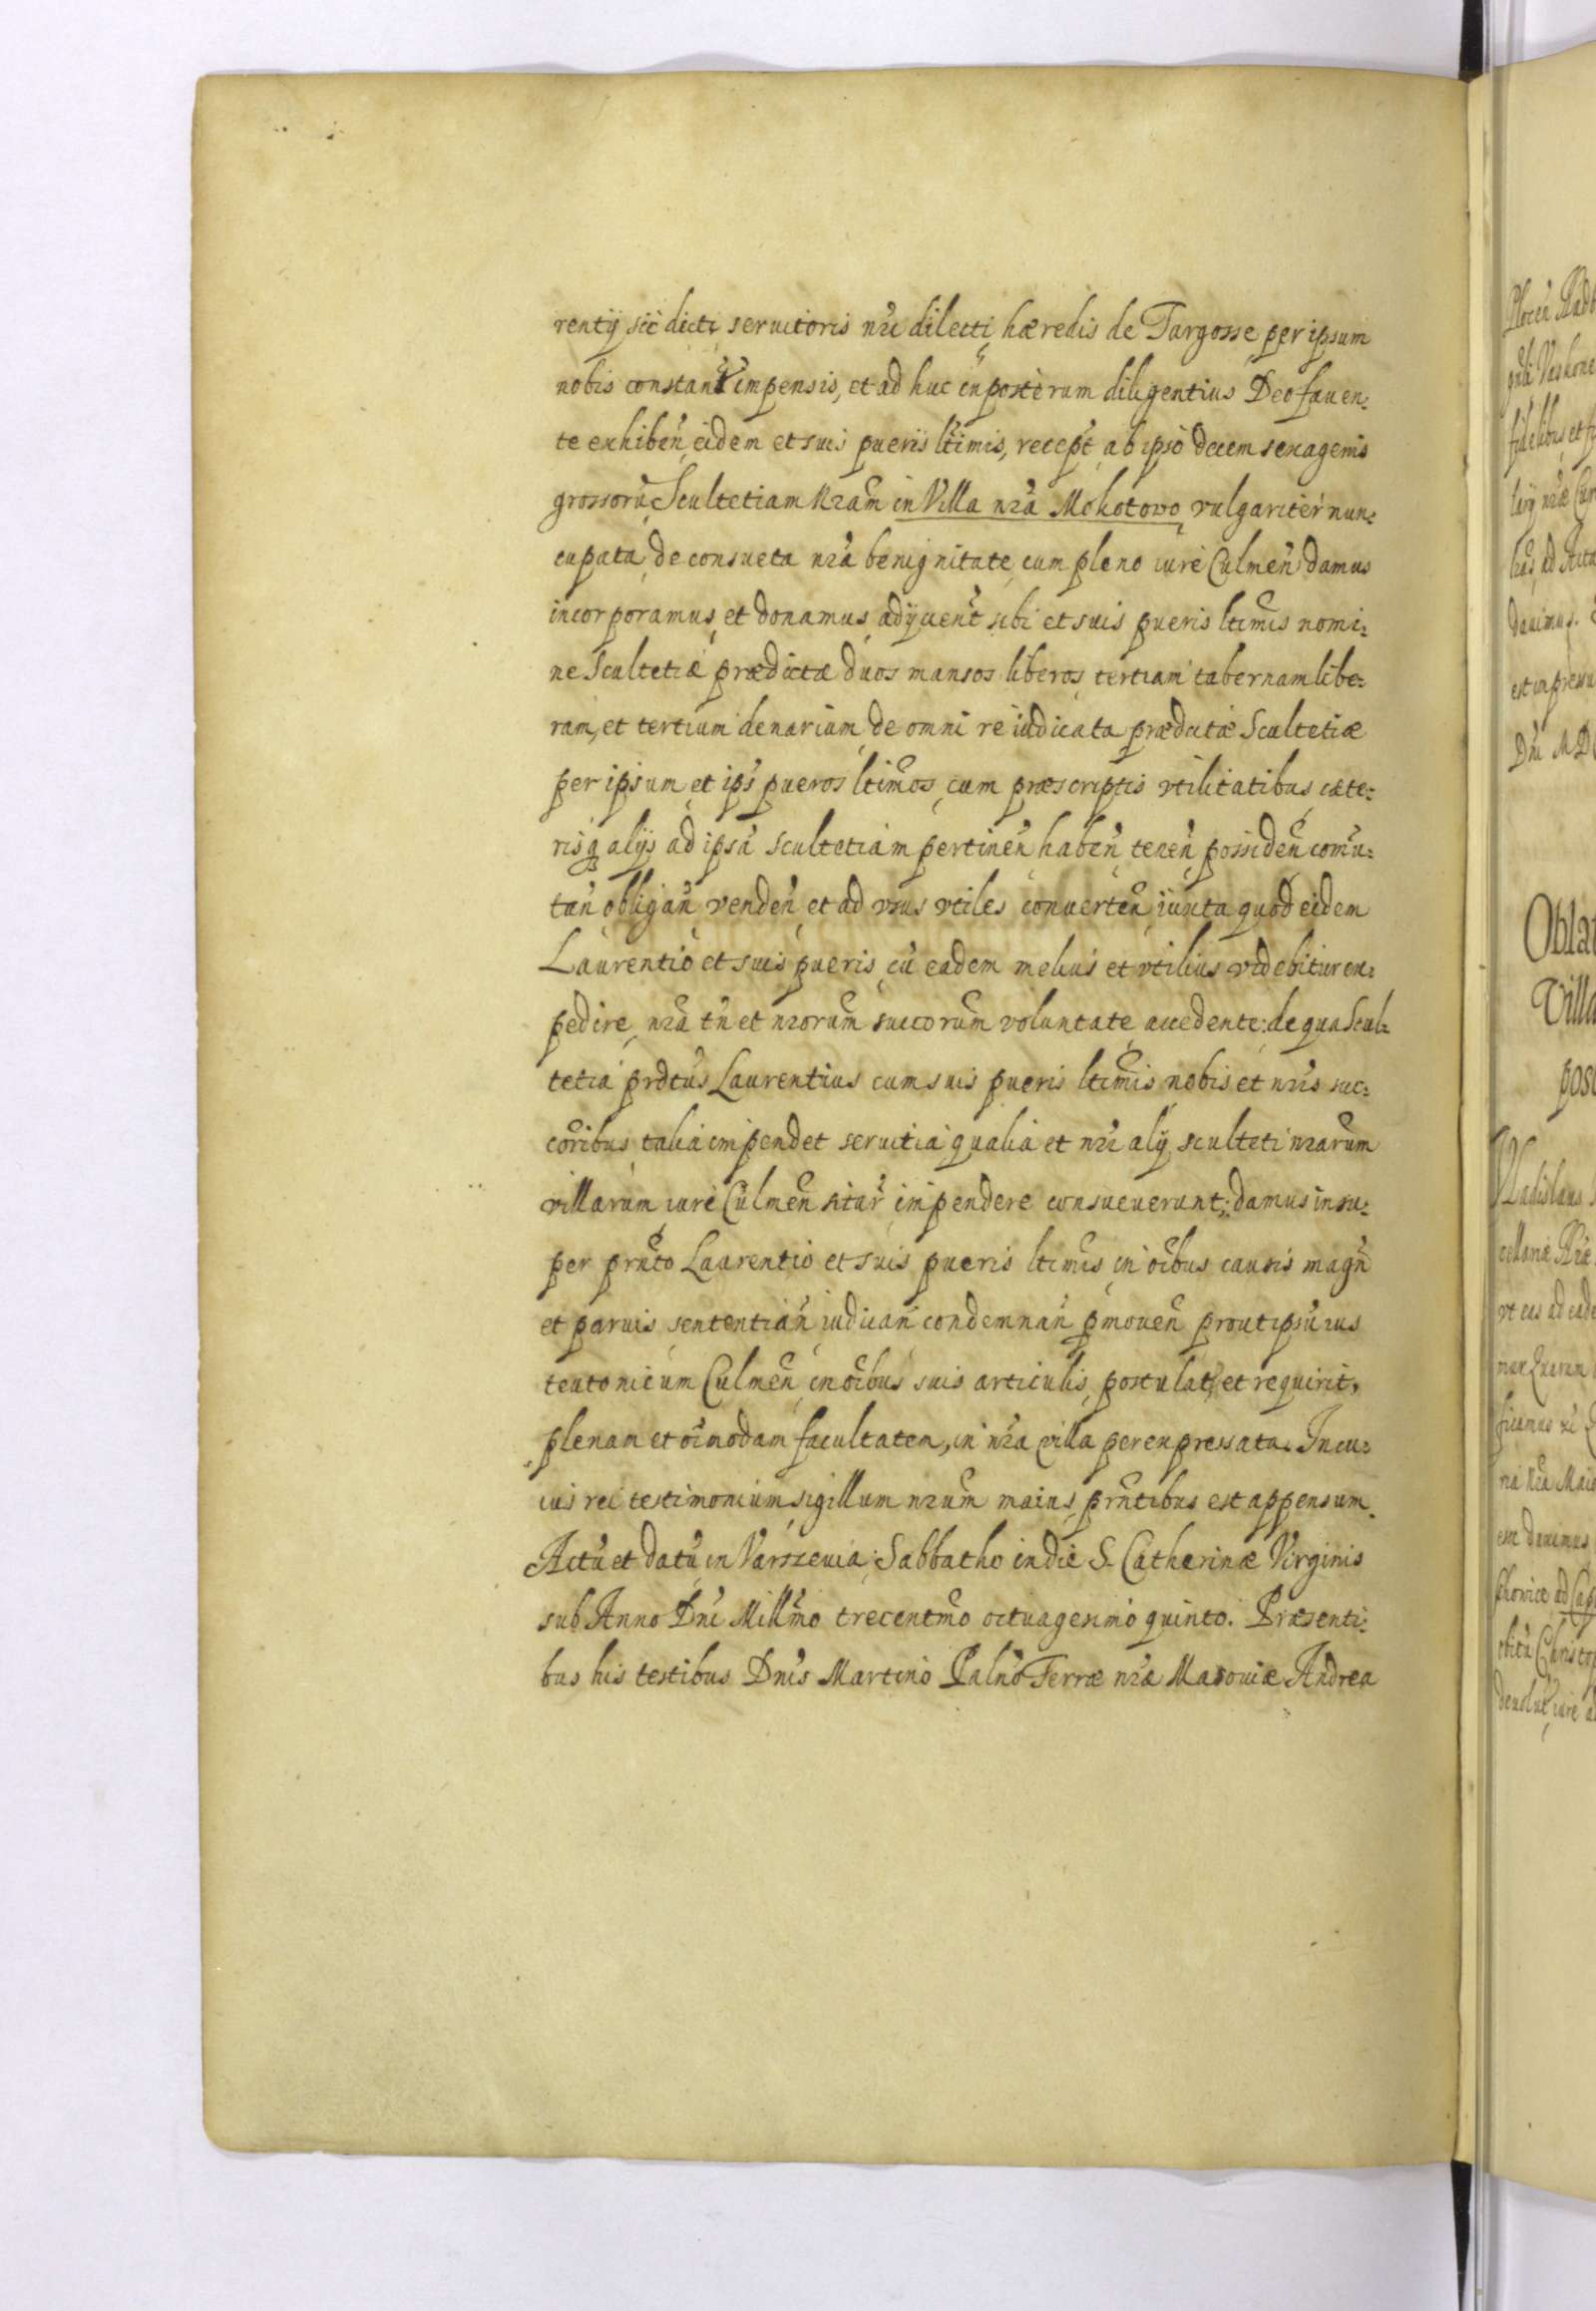 rentij sic dicti seruitoris nri dilecti hæredis de Targosse per ipsum
nobis constant impensis, et ad huc in posterum diligentius Deo fauen:
te exhiben eidem et suis pueris ltimis, recept ab ipso decem sexagenis
grossorũ Scultetiam Nram in Villa nra Mokotowo vulgariter nun:
cupata de consueta nra benignitate cum pleno iure Culmen damus
incorporamus et donamus adijcient sibi et suis pueris ltimis nomi:
ne Scultetiæ prædictæ duos mansos liberos tertiam tabernam libe:
ram, et tertium denarium de omni re iudicata prædictæ Scultetiæ
per ipsum et ips pueros ltimos cum præscriptis vtilitatibus cæte:
risq alijs ad ipsã scultetiam pertinen haben tenen possiden comu:
tan obligan venden et ad vsus vtiles conuerten iuxta quod eidem
Laurentio et suis pueris cũ eadem melius et vtilius videbitur ex:
pedire, nra tn et nrorum succorum voluntate accedente: de qua Scul:
tetia prdtus Laurentius cum suis pueris ltimis nobis et nris suc:
coribus talia impendet seruitia qualia et nri alij sculteti nrarum
villarum iure Culmen sitar impendere consueuerunt; damus insu:
per prnto Laurentio et suis pueris ltimis in oibus causis magn
et paruis sententian iudican condemnan pmouen prout ipsũ ius
teutonicum Culmen in oibus suis articulis postulat, et requirit,
plenam et oimodam facultatem, in nra villa per expressata. In cu:
ius rei testimonium sigillum nrum maius prntibus est appensum.
Actũ et datũ in Varszeuia: Sabbatho in die S. Catherinæ Virginis
sub Anno Dni Millmo trecentmo octuagesimo quinto. Præsenti:
bus his testibus Dnis Martino Palno Terræ nræ Masouiæ Andrea
Oblat
Villa